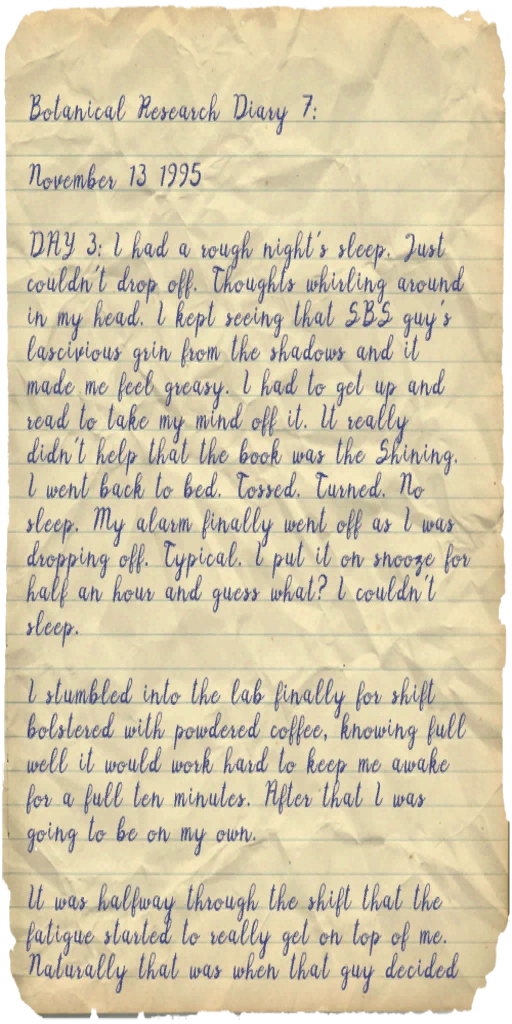 Botanical Research Diary 7:
November 13 1995
DAY 3: I had a rough night's sleep. Just
couldn't drop off. Thoughts whirling around
in my head. I kept seeing that SBS guy's
lascivious grin from the shadows and it
made me feel greasy. I had to get up and
read to take my mind off it. It really
didn't help that the book was the Shining.
I went back to bed. Tossed. Turned. No
sleep. My alarm finally went off as I was
dropping off. Typical. I put it on snooze for
half an hour and guess what? I couldn't
sleep.
I stumbled into the lab finally for shift
bolstered with powdered coffee, knowing full
well it would work hard to keep me awake
for a full ten minutes. After that I was
going to be on my own.
It was halfway through the shift that the
fatigue started to really get on top of me.
Naturally that was when that guy decided